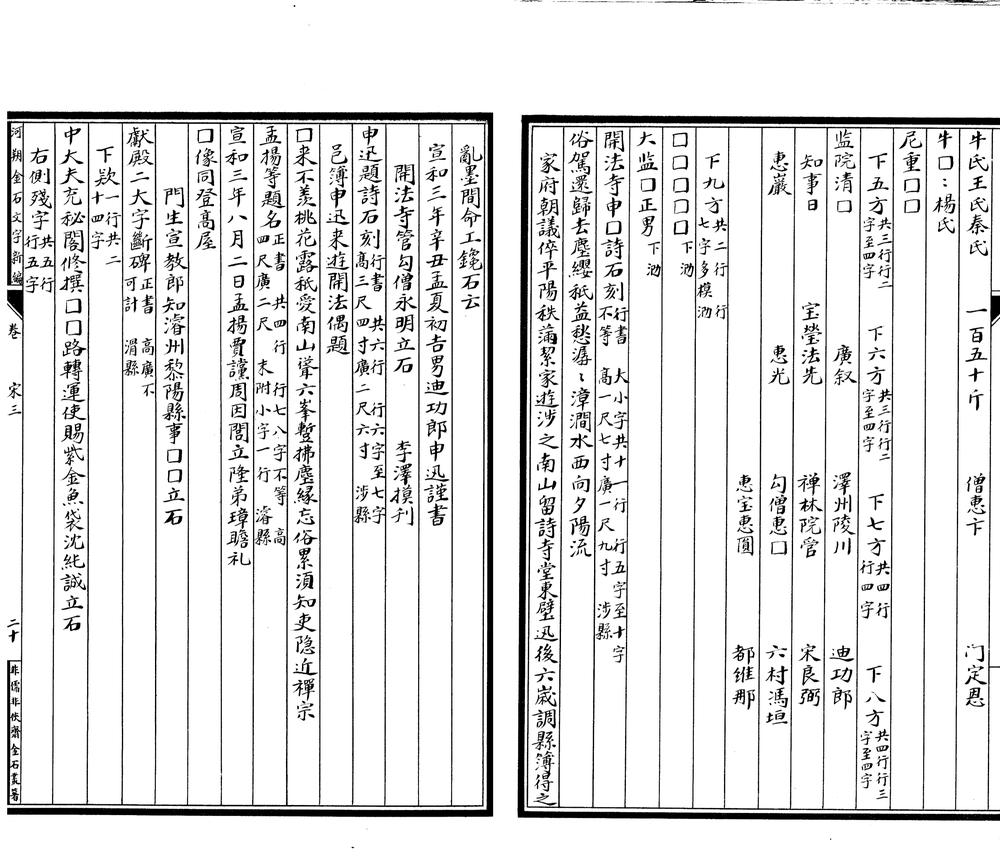 牛氏王氏秦氏　一百五十斤　僧惠卞　门定恩
牛口：楊氏
尼重口口
下五方共三行行二字至四字　下六方共三行行二字至四字　下七方共四行行四字　下八方共四行行三字至四字
监院清口　廣叙　澤州陵川　迪功郎
知事日　宝瑩法先　禅林院管　宋良弼
惠巖　惠光　勾僧惠口　六村馮垣
惠宝惠圓　都维那
下九方共二行行七字多模泐
口口口口口下泐
大监口正男下泐
開法寺申口詩石刻行書大小字共十一行行五字至十字不等高一尺七寸廣一尺九寸涉縣
俗駕還歸去塵纓秖益愁潺〻漳澗水西向夕陽流
家府朝議倅平陽秩滿絜家遊涉之南山留詩寺堂東壁迅後六歲調縣簿得之
亂墨間命工鑱石云
宣和三年辛丑孟夏初吉男迪功郎申迅謹書
開法寺管勾僧永明立石　李澤摸刋
申迅題詩石刻行書共六行行六字至七字高三尺四寸廣二尺六寸涉縣
邑簿申迅来遊開法偶題
口来不羨桃花露秖愛南山聳六峯蹔拂塵緣忘俗累須知吏隐近禪宗
孟揚等題名正書共四行行七八字不等高四尺廣二尺末附小字一行濬縣
宣和三年八月二日孟揚賈讜周因閻立隆弟璋瞻礼
口像同登高屋
門生宣教郎知濬州黎陽縣事口口立石
獻殿二大字斷碑正書高廣不可計渭縣
下欵一行共二十四字
中大夫充秘閣修撰口口路轉運使賜紫金魚袋沈純誠立石
右側殘字共五行行五字
河朔金石文字新編
卷　宋三
二十
非儒非俠齋金石叢著